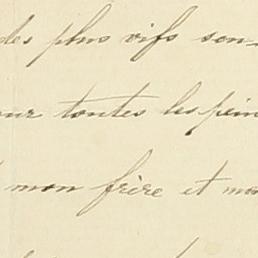 des plus vifs sen-
our toutes les pein
mon frère et mon